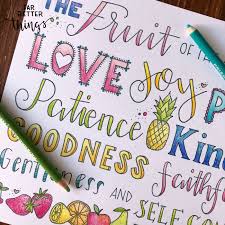 FAR
BETTER
things
THE Fruit OF
LOVE Joy P
Patience
GOODNESS Kin
Gentleness Faithf
AND SELF CO